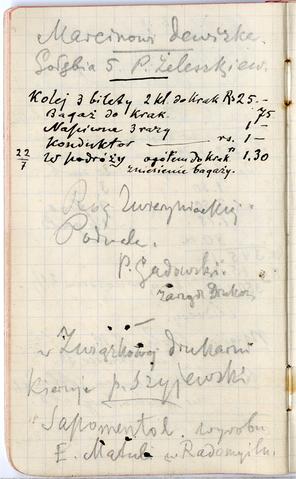 Marcinowi Dewizka.
Gołębia 5 P. Żeleszkiew.
Kolej 3 bilety 2 kl. do Krak Rs 25.—
Bagaż do Krak. 75
Napiwna 3 razy 1—
Konduktor rs. 1—
22/7 w podróży ogółem do krak rs 1.30
zniesienie bagaży.
Róg Zwierzynieckiej
Podwale.
P. Gadowski.
zarząd Drukar,
w Związkowej drukarni
Kieruje p. Szyjewski
Sapomentol. wyrobu
E. Matuli w Radomyślu.